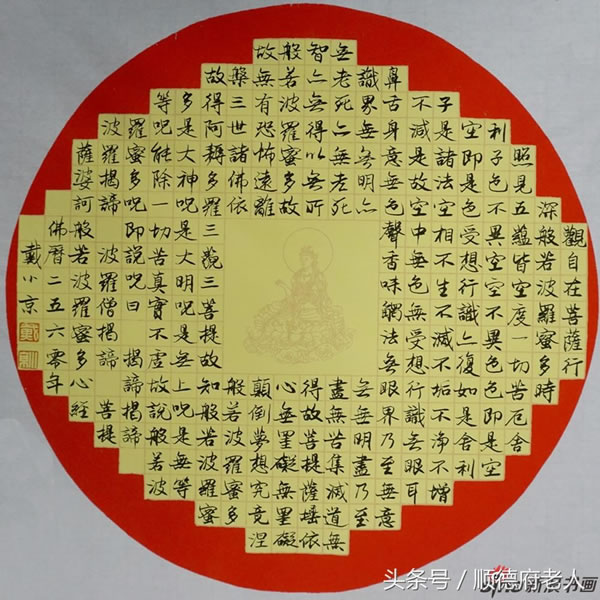 觀自在菩薩行
深般若波羅蜜多時
照見五蘊皆空度一切苦厄舍
利子色不異空空不異色色即是空
空即是色受想行識亦復如是舍利
子是諸法空相不生不滅不垢不淨不增
不減是故空中無色無受想行識無眼耳
鼻舌身意無色聲香味觸法無眼界乃至無意
識界無無明亦無無明盡乃至
無老死亦無老死盡無苦集滅道無
智亦無得以無所得故菩提薩埵依
般若波羅蜜多故心無罣礙無罣礙
故無有恐怖遠離顛倒夢想究竟涅
槃三世諸佛依般若波羅蜜多
故得阿耨多羅三藐三菩提故知般若波羅蜜
多是大神咒是大明咒是無上咒是無等
等咒能除一切苦真實不虛故說般若波
羅蜜多咒即說咒曰 揭諦揭諦
波羅揭諦 波羅僧揭諦 菩提
薩婆訶般若波羅蜜多心經
佛曆二五六零年
戴小京
头条号/顺德府老人